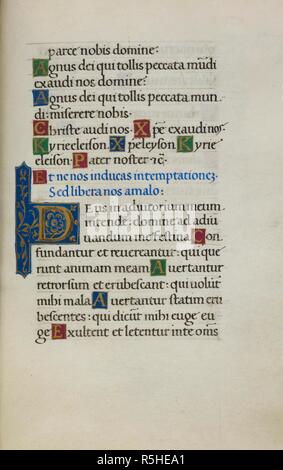 parce nobis domine:
Agnus dei qui tollis peccata mũdi
exaudi nos domine:
Agnus dei qui tollis peccata mun
di: miserere nobis.
Christe audi nos: Xp̃e exaudi nos.
Kyrieeleison: Xpeleyson. Kyrie
eleison: Pater noster ic̃.
Et ne nos inducas in temptationez.
Sed libera nos a malo:
Deus in adiutorium meum
intende: domine ad adiu
uandum me festina. Con
fundantur et reuereantur: qui que
runt animam meam. Auertantur
retrorsum et erubescant: qui uolũt
mihi mala. Auertantur statim eru
bescentes: qui dicũt mihi euge eu
ge. Exultent et letentur in te om̃s
alamy
R5HEA1